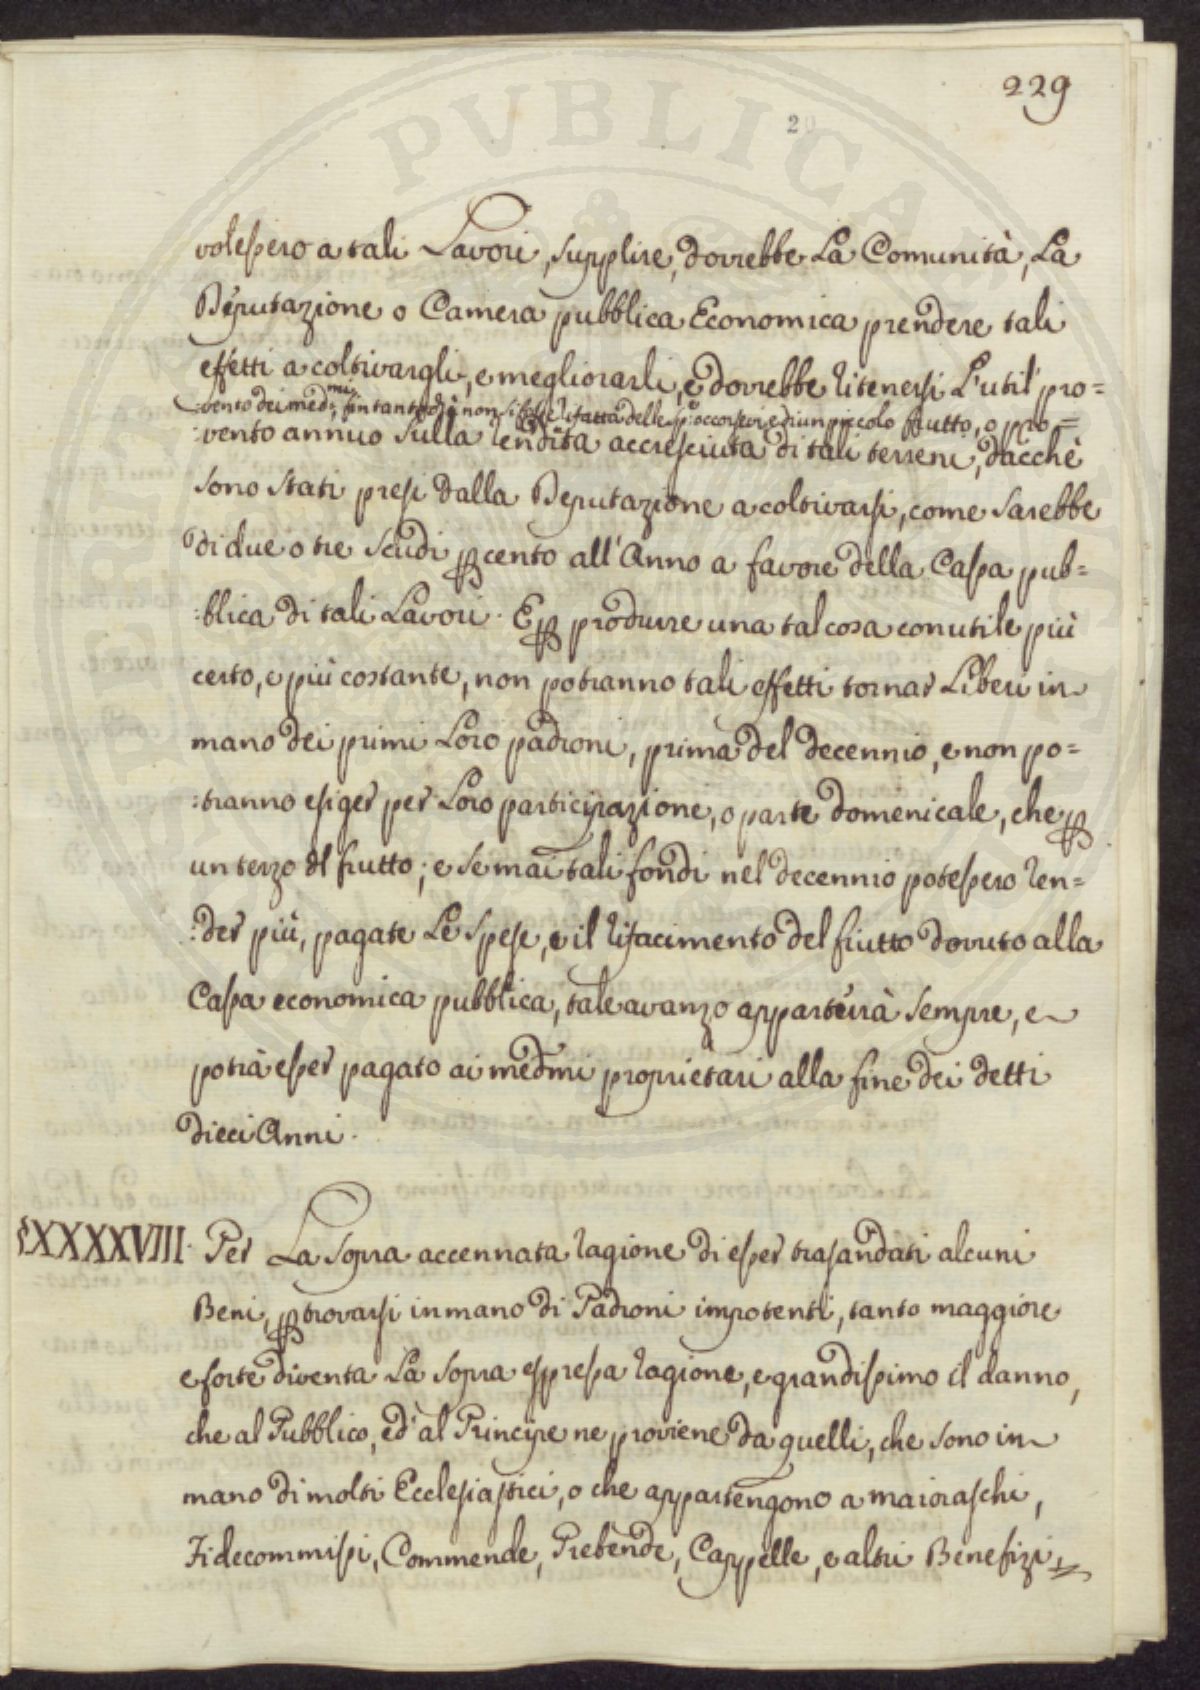 229
20
PVBLICA
volessero a tali Lavori, supplire, dovrebbe La Comunità, La
Deputazione o Camera pubblica Economica prendere tali
effetti a coltivargli, e megliorarli, e dovrebbe ritenersi L'util pro=
:vento dei med:mi, fin tanto che non si fosse rifatta delle sp:e occorsevi, e di un piccolo frutto, o pro=
:vento annuo sulla rendita accresciuta di tali terreni, dacchè
sono stati presi dalla Deputazione a coltivarsi, come sarebbe
di due o tre scudi p cento all'Anno a favore della Cassa pub=
:blica di tali Lavori. E p produrre una tal cosa con utile più
certo, e più costante, non potranno tali effetti tornar Liberi in
mano dei primi Loro padroni, prima del decennio, e non po=
:tranno esiger per Loro participazione, o parte domenicale, che p
un terzo del frutto; e se mai tali fondi nel decennio potessero ren=
:der più, pagate Le spese, e il rifacimento del frutto dovuto alla
Cassa economica pubblica, tale avanzo apparterrà sempre, e
potrà esser pagato ai medmi proprietari alla fine dei detti
dieci Anni.
§XXXXVIII. Per La sopra accennata ragione di esser trasandati alcuni
Beni, p trovarsi in mano di Padroni impotenti, tanto maggiore
e forte diventa La sopra espressa ragione, e grandissimo il danno,
che al Pubblico, ed al Principe ne proviene da quelli, che sono in
mano di molti Ecclesiastici, o che appartengono a maioraschi,
Fidecommissi, Commende, Prebende, Cappelle, e altri Benefizi,